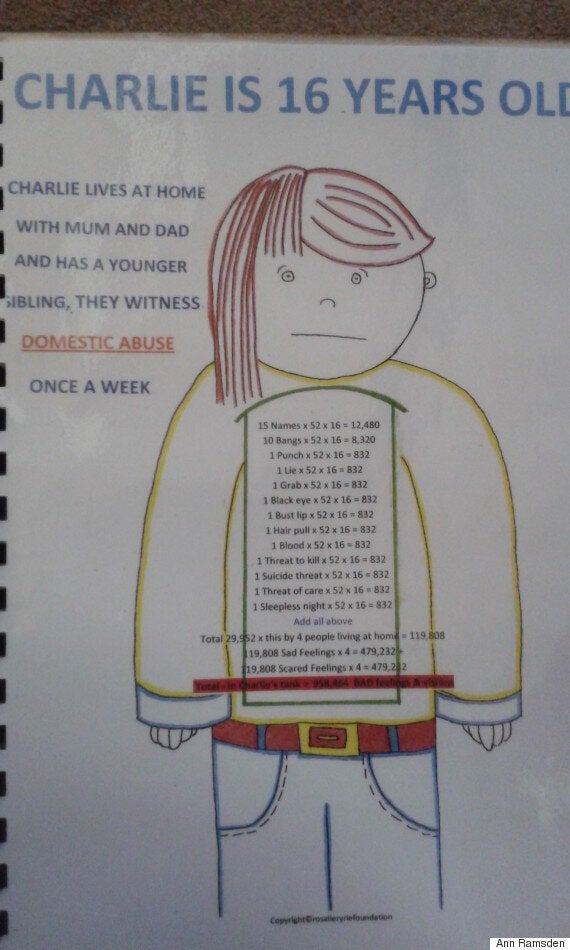 CHARLIE IS 16 YEARS OLD
CHARLIE LIVES AT HOME
WITH MUM AND DAD
AND HAS A YOUNGER
SIBLING, THEY WITNESS
DOMESTIC ABUSE
ONCE A WEEK
15 Names x 52 x 16 = 12,480
10 Bangs x 52 x 16 = 8,320
1 Punch x 52 x 16 = 832
1 Lie x 52 x 16 = 832
1 Grab x 52 x 16 = 832
1 Black eye x 52 x 16 = 832
1 Bust lip x 52 x 16 = 832
1 Hair pull x 52 x 16 = 832
1 Blood x 52 x 16 = 832
1 Threat to kill x 52 x 16 = 832
1 Suicide threat x 52 x 16 = 832
1 Threat of care x 52 x 16 = 832
1 Sleepless night x 52 x 16 = 832
Add all above
Total 29,952 x this by 4 people living at home = 119,808
119,808 Sad Feelings x 4 = 479,232 +
119,808 Scared Feelings x 4 = 479,232
Total - in Charlie's tank = 958,464 BAD feelings &
Copyright©rosalieryriefoundation
Ann Ramsden